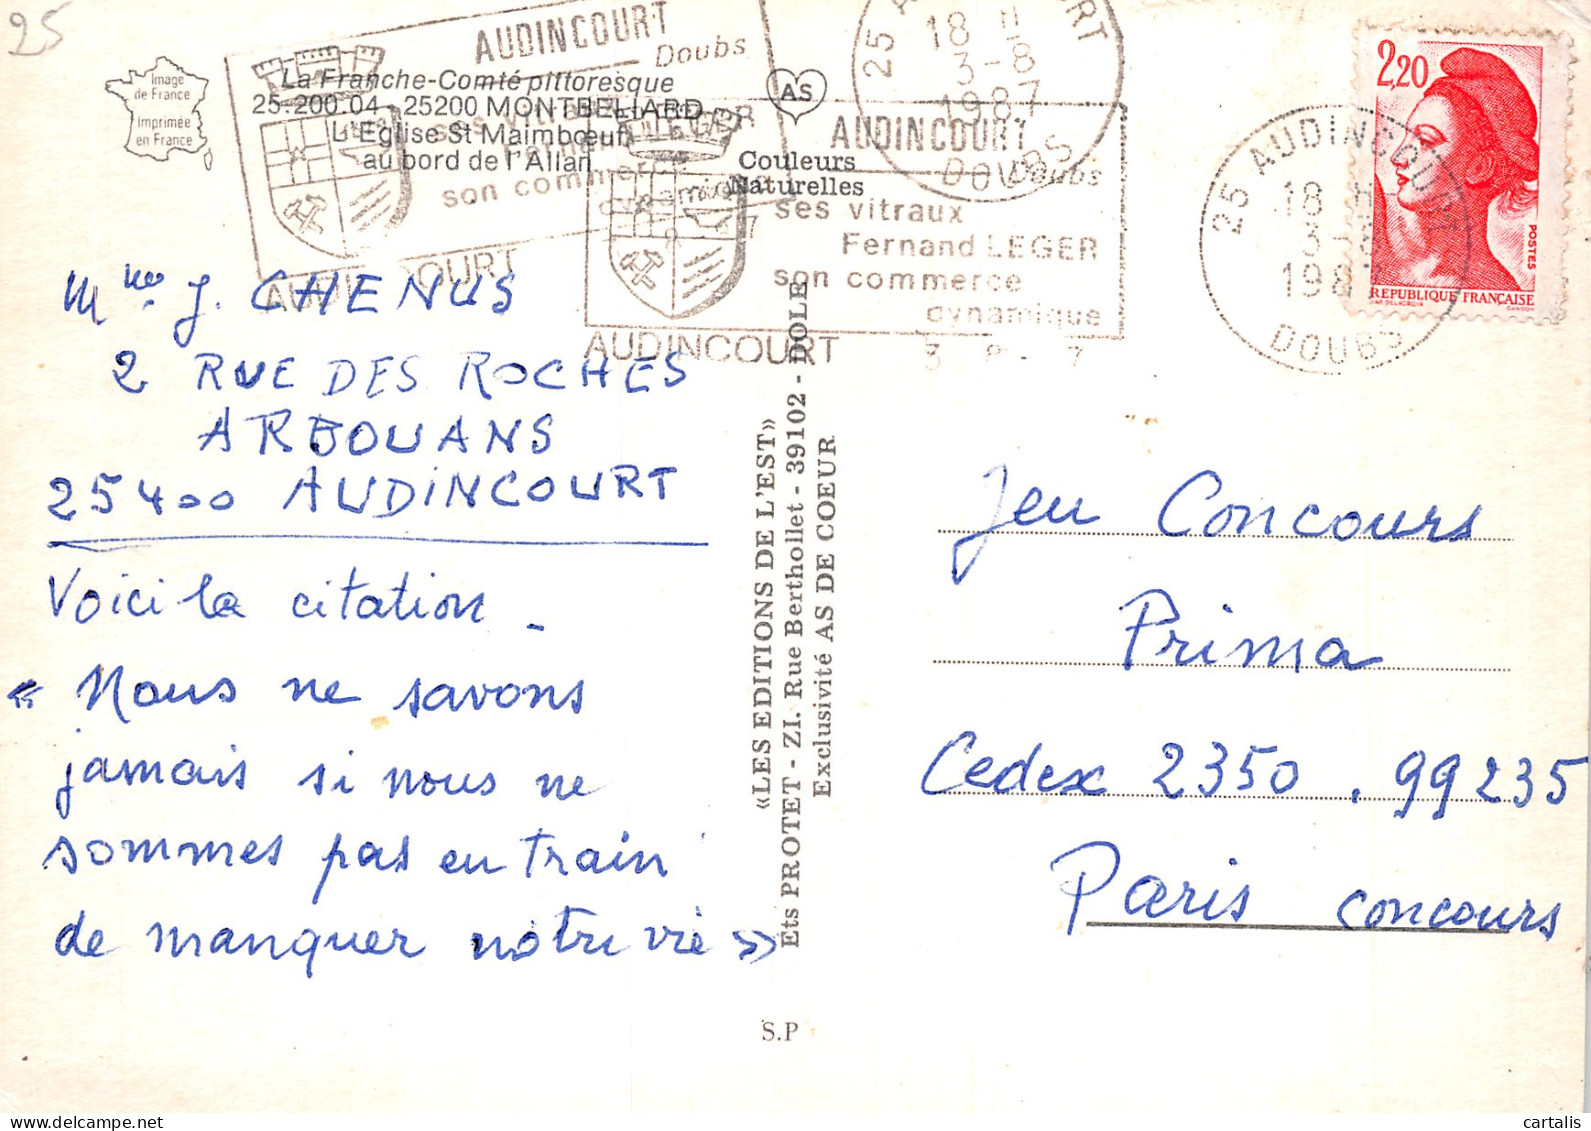 25
Image
de France
Imprimée
en France
La Franche-Comté pittoresque
25-200.04 - 25200 MONTBELIARD
L'Eglise St Maimbœuf
au bord de l'Allan
AS
Couleurs
Naturelles
AUDINCOURT
Doubs
son commerce
AUDINCOURT
AUDINCOURT
Doubs
ses vitraux
Fernand LEGER
son commerce
dynamique
AUDINCOURT
25
18 H
3-8
1987
DOUBS
25 AUDINCOURT
18 H
3-8
1987
DOUBS
2,20
POSTES
REPUBLIQUE FRANÇAISE
Mme J. CHENUS
2 RUE DES ROCHES
ARBOUANS
25400 AUDINCOURT
Voici la citation -
« Nous ne savons
jamais si nous ne
sommes pas en train
de manquer notre vie »
«LES EDITIONS DE L'EST»
Ets PROTET - ZI. Rue Berthollet - 39102 - DOLE
Exclusivité AS DE COEUR
S.P
Jeu Concours
Prima
Cedex 2350 . 99235
Paris concours
cartalis